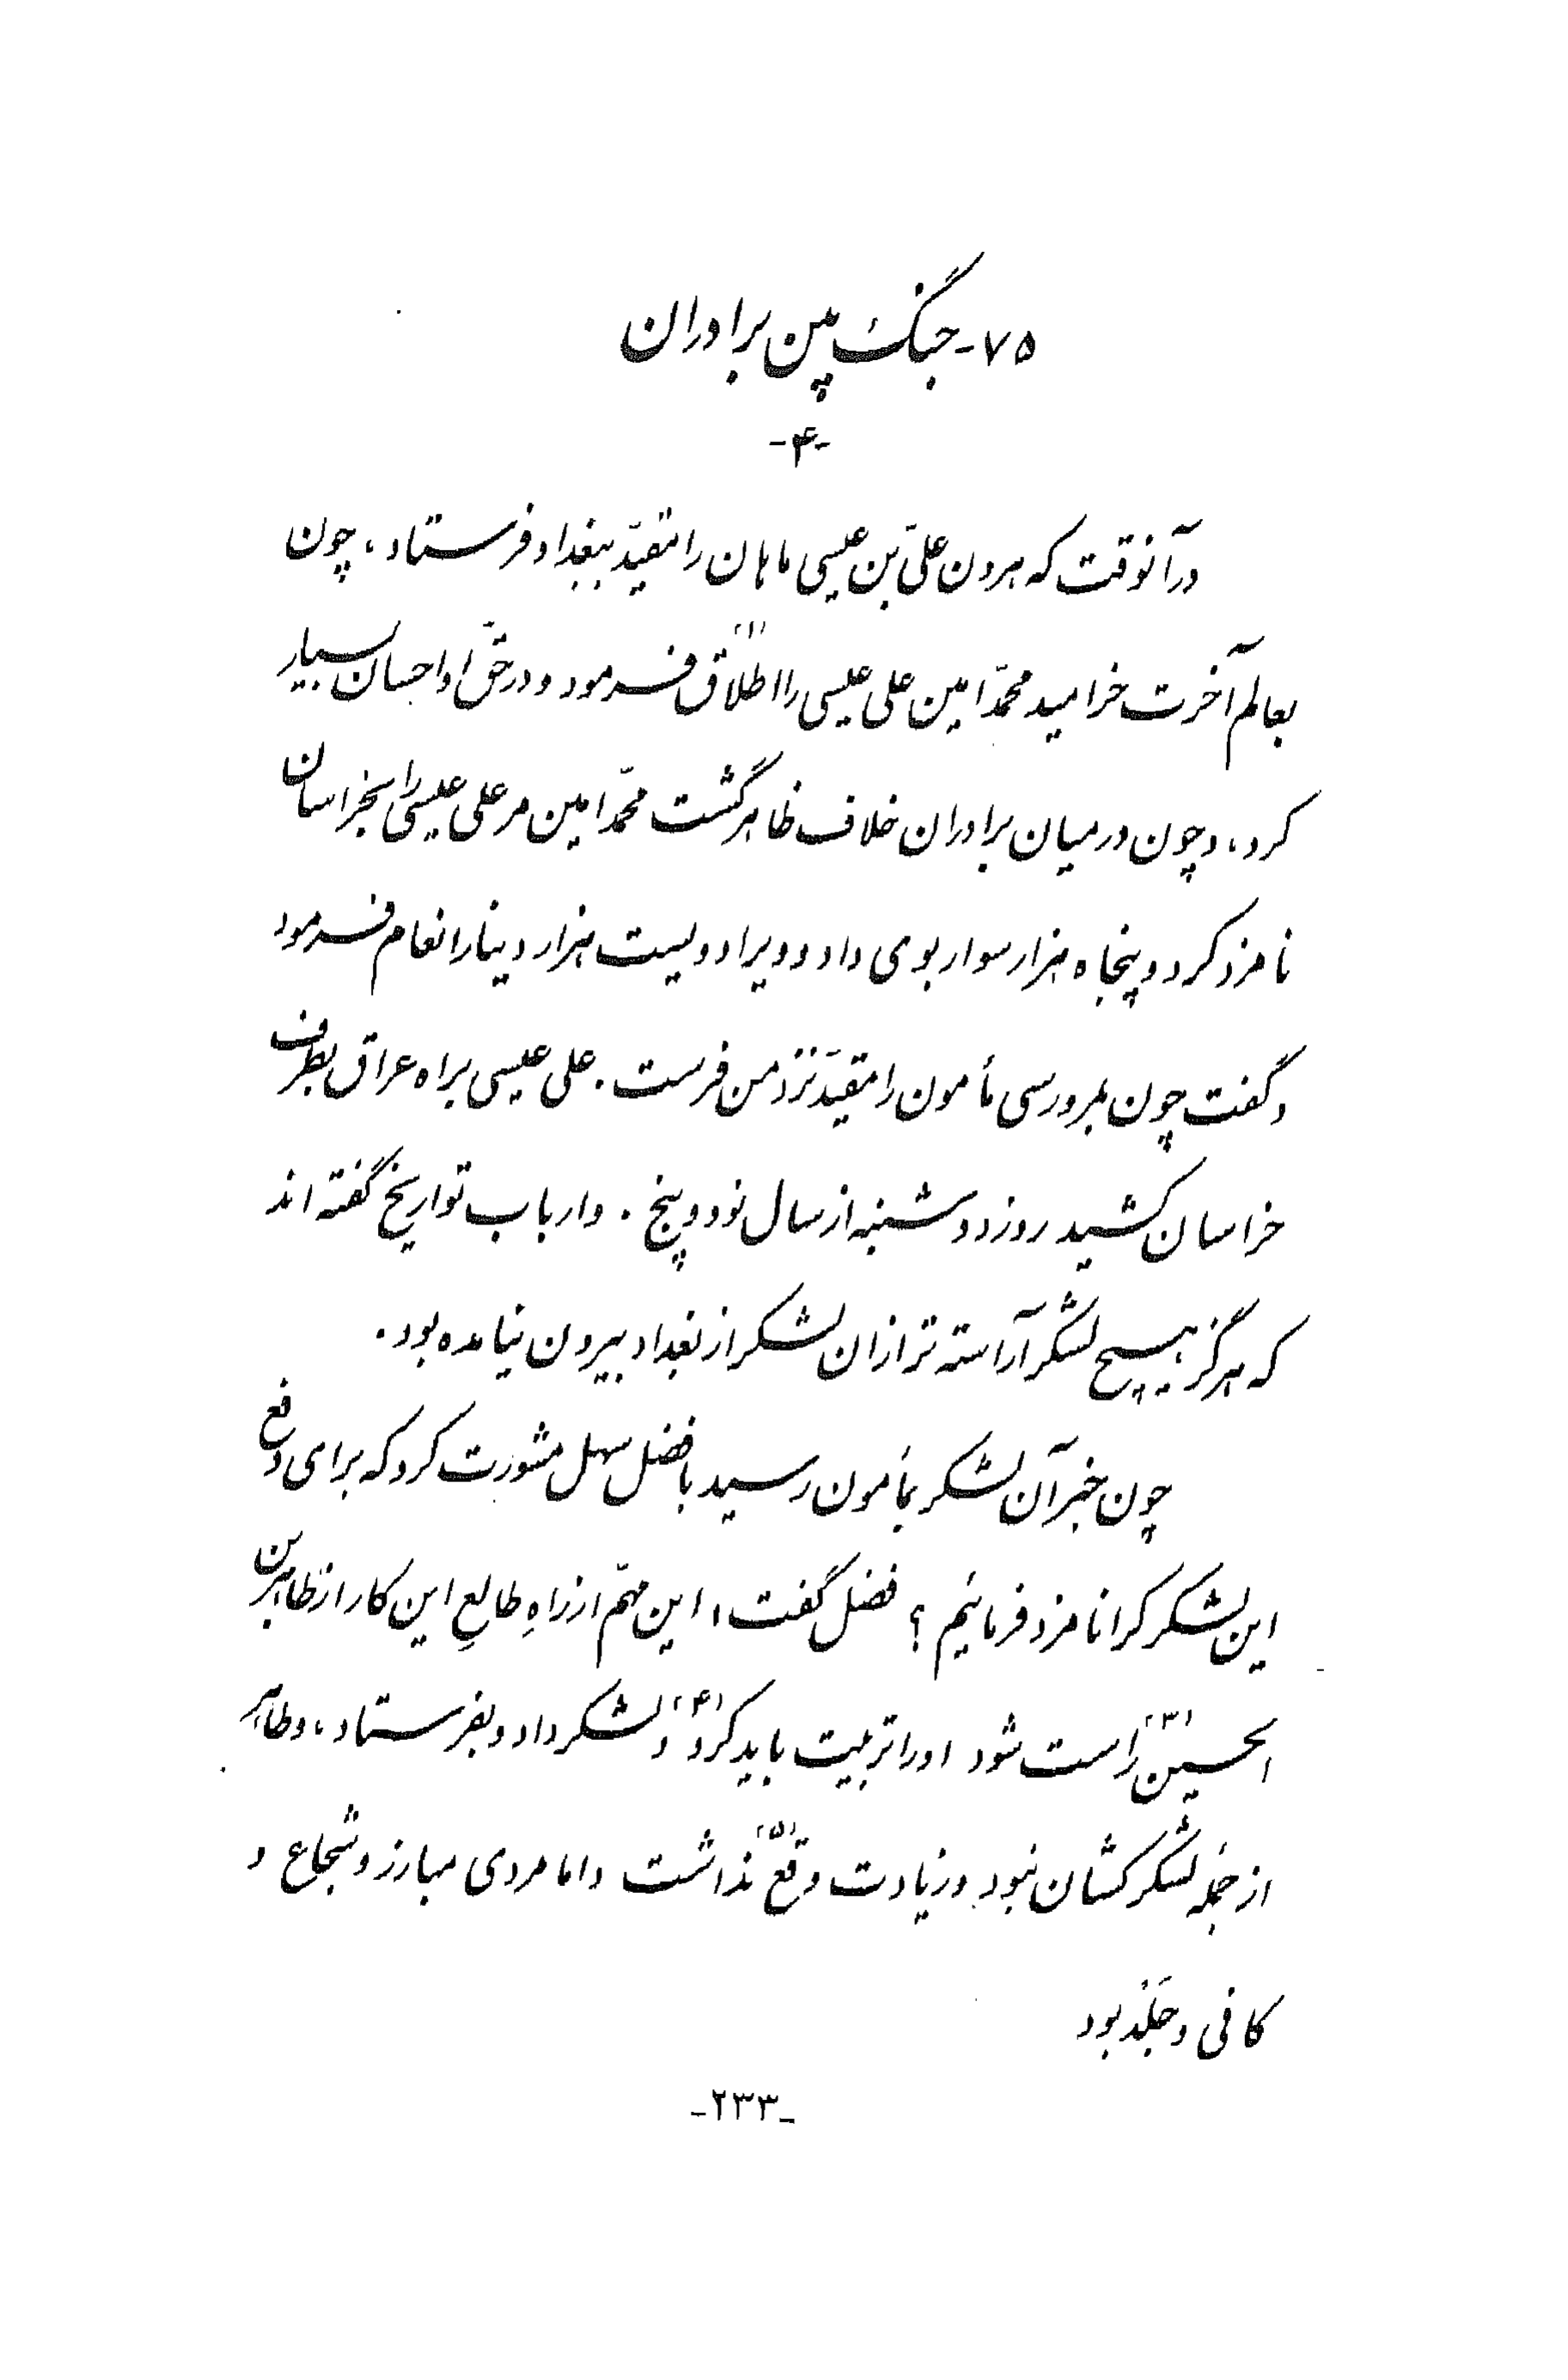 ۷۵- جنگ بین برادران
-۴-
در آنوقت که هرون علیّ بن عیسی ماهان را مقیّد ببغداد فرستاد، چون
بعالم آخرت خرامید محمّد امین علی عیسی را اطلاق (۱) فرمود و در حقّ او احسان بسیار
کرد، و چون در میان برادران خلاف ظاهر گشت محمّد امین مر علی عیسی را بخراسان
نامزد کرد و پنجاه هزار سوار بوی داد و ویرا دویست هزار دینار انعام فرمود
و گفت چون بمرو رسی مأمون را مقیّد نزد من فرست. علی عیسی براه عراق بطرف
خراسان کشید روز دوشنبه از سال نود و پنج. و ارباب تواریخ گفته اند
که هرگز هیچ لشکر آراسته تر از ان لشکر از بغداد بیرون نیامده بود.
چون خبر آن لشکر بمأمون رسید با فضل سهل مشورت کرد که برای دفع
این لشکر کرا نامزد فرمائیم؟ فضل گفت، این مهمّ از زاهِ طالعِ این کار از طاهر بن
الحسین (۳) راست شود او را تربیت باید کرد (۴) و لشکر داد و بفرستاد، و طاهر
از جمله لشکر کشان نبود و زیادت وقعّ (۵) نداشت و اما مردی مبارز و شجاع و
کافی و جَلْد بود
-۲۳۳-